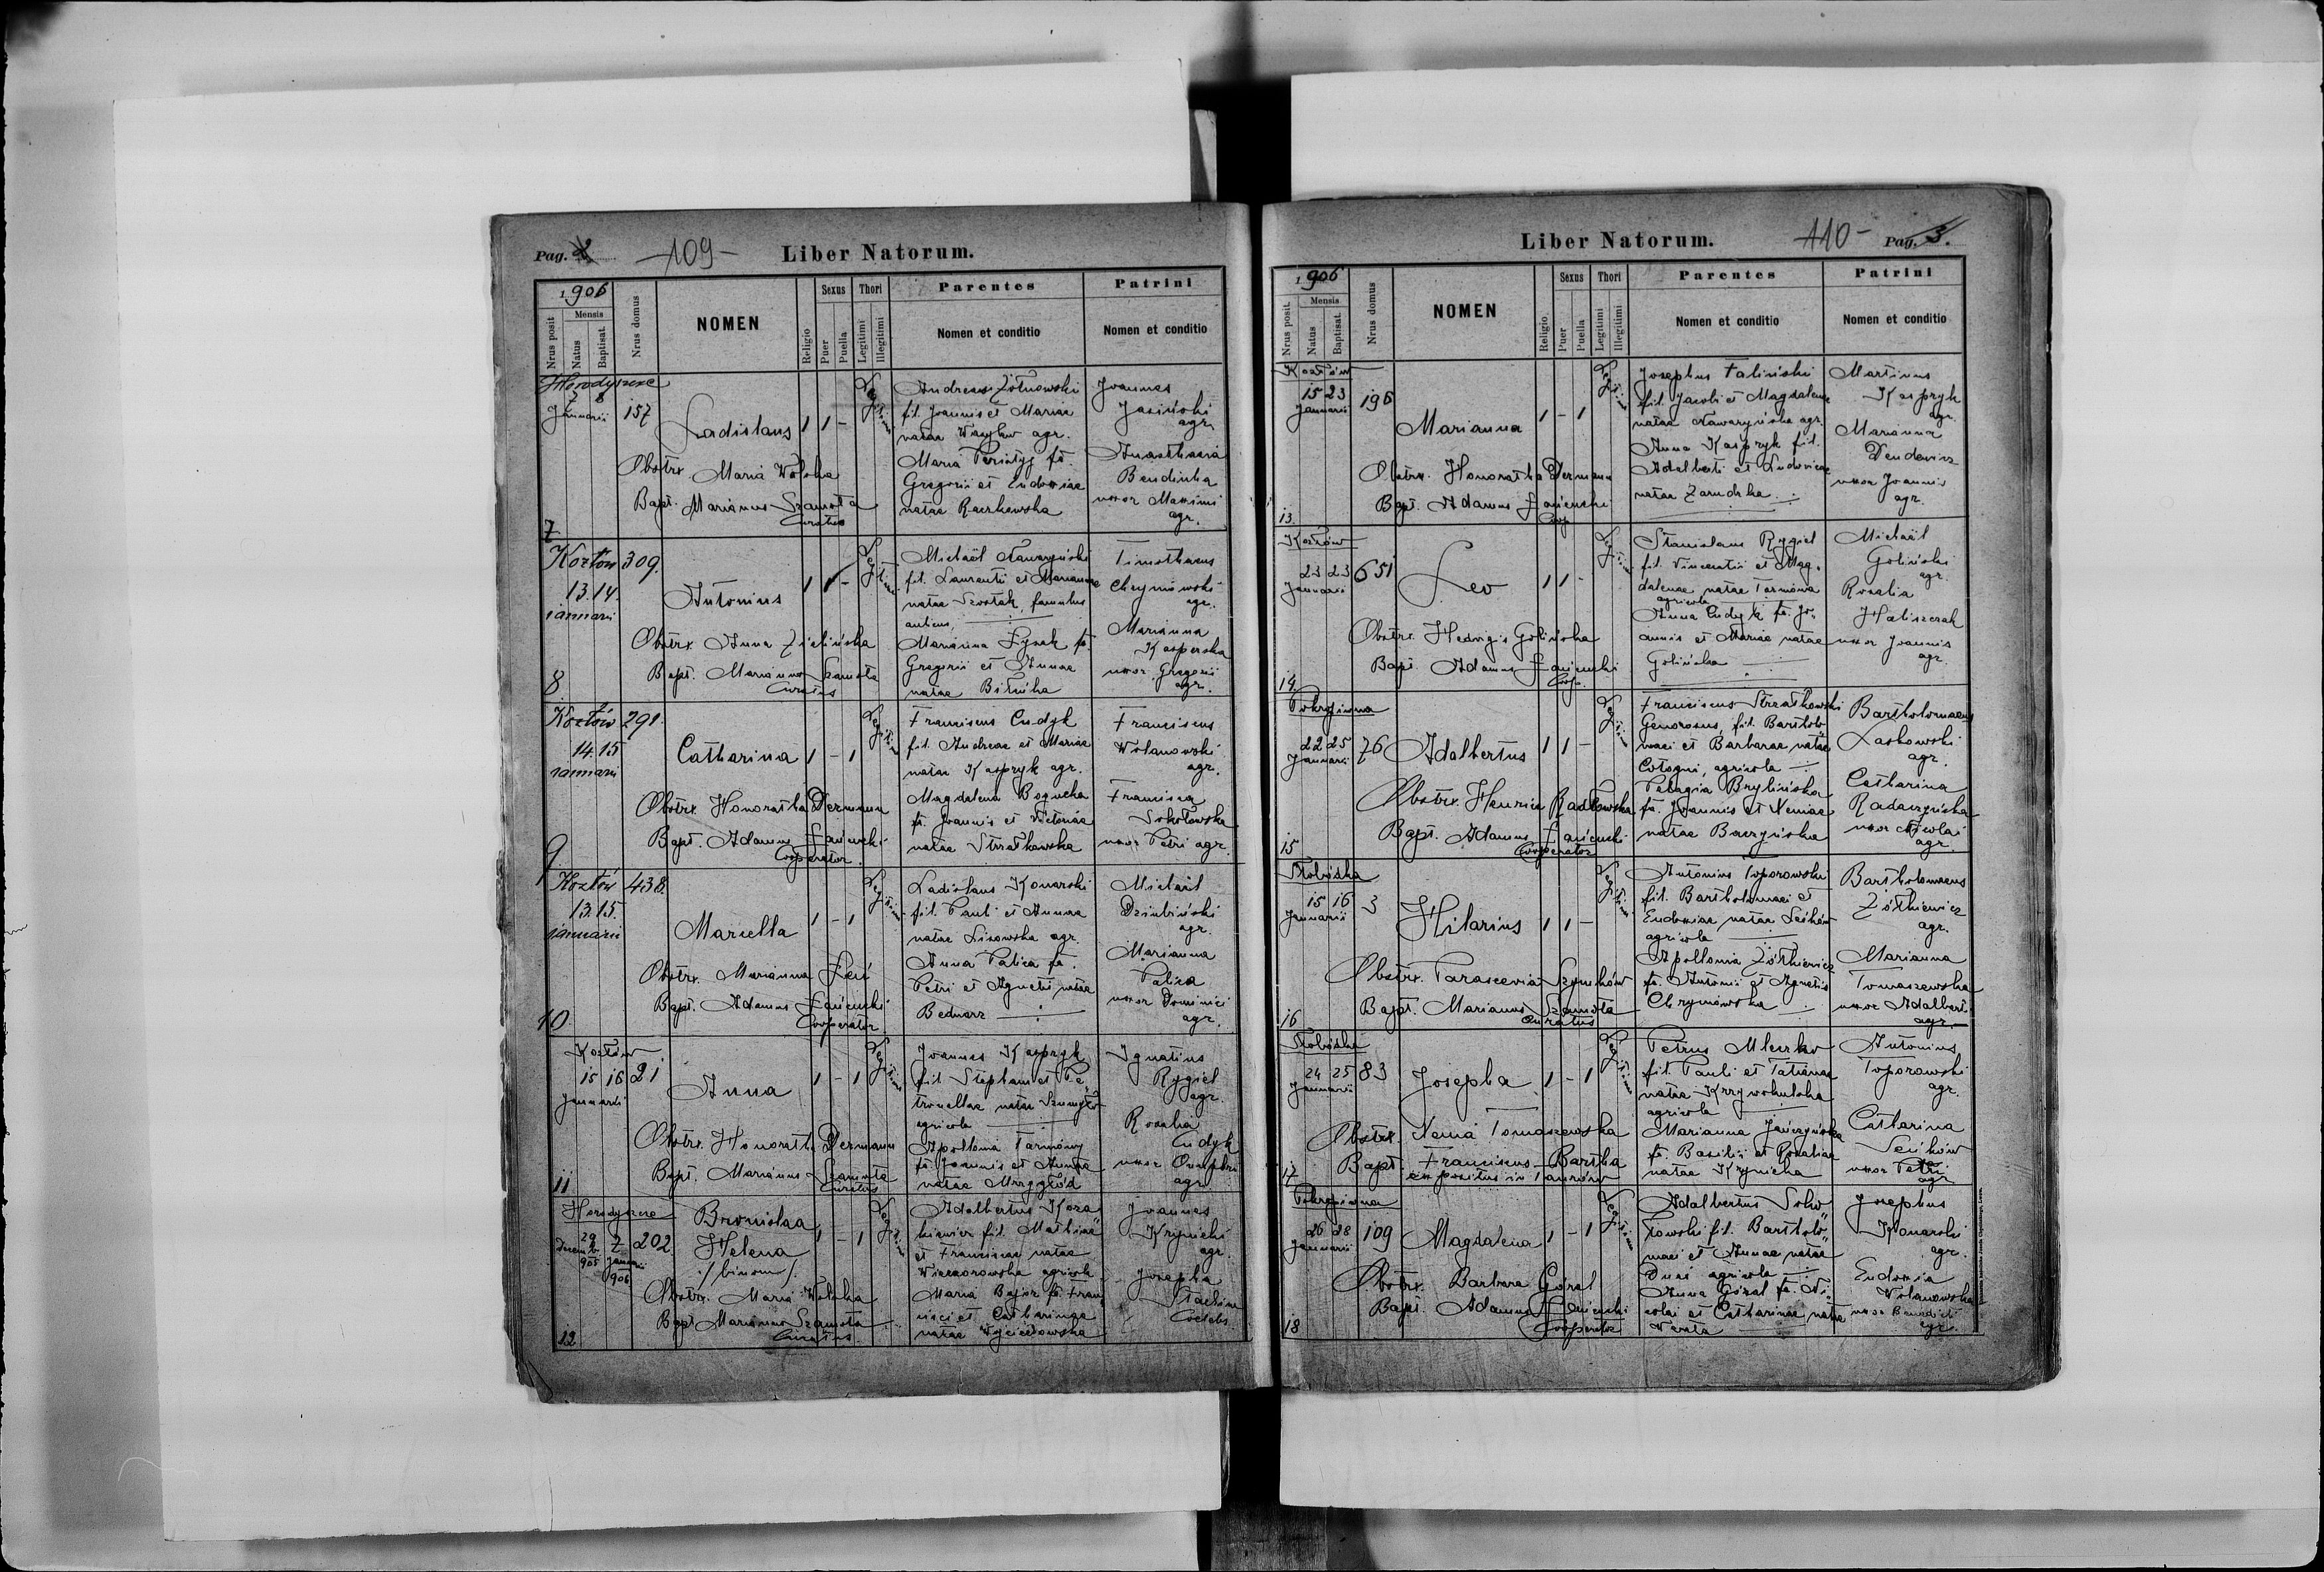 Pag. 2
-109-
Liber Natorum.
1906
Nrus posit
Mensis
Natus
Baptisat.
Nrus domus
NOMEN
Religio
Sexus
Puer
Puella
Thori
Legitimi
Illegitimi
Parentes
Nomen et conditio
Patrini
Nomen et conditio
Horodyszcze
7 8
Januarii
157
Ladislaus
1 1 -
Legitimi
Obstrx Maria Wołoka
Bapt. Marianus Szamota
Curatus
7
Andreas Żółnowski
fil. Joannis et Mariae
natae agr.
Maria fa.
Gregorii et Eudoxiae
natae Raczkowska
Joannes
Jasiński
agr.
Anasthasia
Bendinka
uxor Maximi
agr.
Kozłów 309.
13. 14.
ianuarii
Antonius
1 1 -
Legitimi
Obstrx. Anna Zielińska
Bapt. Marianus Szamota
Curatus
8
Michaël Nawaryński
fil. Laurentii et Mariannae
natae Szostak, famulus
aulicus,
Marianna Łysak fa.
Gregorii et Annae
natae Bilińska
Timothaeus
Chrymowski
agr.
Marianna
Kasperska
uxor Gregorii
agr.
Kozłów 291.
14. 15
ianuarii
Catharina
1 - 1
Legitimi
Obstrx. Honoratha Dermann
Bapt. Adamus Łańcucki
Cooperator
9
Franciscus Cudyk
fil. Andreae et Mariae
natae Kaspryk agr.
Magdalena Bogucka
fa. Joannis et Victoriae
natae Strzałkowska
Franciscus
Wolanowski
agr.
Francisca
Sokołowska
uxor Petri agr.
Kozłów 438.
13. 15.
ianuarii
Marcella
1 - 1
Legitimi
Obstrx. Marianna
Bapt. Adamus Łańcucki
Cooperator
10
Ladislaus Konarski
fil. Pauli et Annae
natae Lisowska agr.
Anna Palica fa.
Petri et Agnetis natae
Bednarz
Michaël
Dziubiński
agr.
Marianna
Palica
uxor Dominici
agr.
Kozłów
15 16 21
Januarii
Anna
1 - 1
Legitimi
Obstrx. Honoratha Dermann
Bapt. Marianus Szamota
Curatus
11
Joannes Kaspryk
fil. Stephani et Pe-
tronellae natae
agricola
Apollonia Tarmowy
fa. Joannis et Annae
natae Mrzygłód
Ignatius
Rygiel
agr.
Rosalia
Cudyk
uxor Onuphri
agr.
Horodyszcze
29 7
Decemb. Januarii
905 906
202.
Bronislaa
Helena
/binom/.
1 - 1
Legitimi
Obstrx. Maria Wołoka
Bapt. Marianus Szamota
Curatus
12
Adalbertus Koza-
kiewicz fil. Mathiae
et Franciscae natae
Wieczorowska agricola
Maria Bajor fa. Fran-
cisci et Catharinae
natae Wojciechowska
Joannes
Krynicki
agr.
Josepha
Stachow
Coelebs.
Liber Natorum.
110-
Pag. 3.
1906
Nrus posit.
Mensis
Natus
Baptisat.
Nrus domus
NOMEN
Religio
Sexus
Puer
Puella
Thori
Legitimi
Illegitimi
Parentes
Nomen et conditio
Patrini
Nomen et conditio
Kozłów
15 23
Januarii
196
Marianna
1 - 1
Legitimi
Obstrx. Honoratha Dermann
Bapt. Adamus Łańcucki
Coop.
13.
Josephus Faliński
fil. Jacobi et Magdalenae
natae Nawaryńska agr.
Anna Kaspryk fil.
Adalberti et Ludovicae
natae Zarudzka
Martinus
Kaspryk
agr.
Marianna
Dendewicz
uxor Joannis
agr.
Kozłów
23 23
Januarii
651
Leo
1 1 -
Legitimi
Obstrx. Hedvigis Golińska
Bapt. Adamus Łańcucki
Coop.
14.
Stanislaus Rygiel
fil. Vincentii et Mag-
dalenae natae Tarmowa
agricola
Anna Cudyk fa. Jo-
annis et Mariae natae
Golińska
Michaël
Goliński
agr.
Rosalia
Haliszczak
uxor Joannis
agr.
Pokropiwna
22 25
Januarii
76
Adalbertus
1 1 -
Legitimi
Obstrx. Henrica Radłowska
Bapt. Adamus Łańcucki
Cooperator
15
Franciscus Strzałkowski
Generosus, fil. Bartholo-
maei et Barbarae natae
agricola
Pelagia Brylińska
fa. Joannis et Xeniae
natae Baczyńska
Bartholomaeus
Laskowski
agr.
Catharina
Radaczyńska
uxor Nicolai
agr.
Słobódka
15 16
Januarii
3
Hilarius
1 1 -
Legitimi
Obstrx. Parascevia Szymków
Bapt. Marianus Szamota
Curatus
16
Antonius Toporowski
fil. Bartholomaei et
Eudoxiae natae Leśków
agricola
Apollonia Żółkiewicz
fa. Antonii et Agnetis
Chrymowska
Bartholomaeus
Żółkiewicz
agr.
Marianna
Tomaszewska
uxor Adalberti
agr.
Słobódka
24 25
Januarii
83
Josepha
1 - 1
Legitimi
Obstrx Xenia Tomaszewska
Bapt. Franciscus Bartha
expositus in Taurów
17
Petrus Mleczko
fil. Pauli et Tatianae
natae Krzywokulska
agricola
Marianna Jańczyńska
fa. Basilii et Rosaliae
natae Krynicka
Antonius
Toporowski
agr.
Catharina
Leśków
uxor Petri
agr.
Pokropiwna
26 28
Januarii
109
Magdalena
1 - 1
Legitimi
Obstrx. Barbara Góral
Bapt. Adamus Łańcucki
Cooperator
18
Adalbertus Soko-
łowski fil. Bartholo-
maei et Annae natae
agricola
Anna Góral fa. Ni-
colai et Catharinae natae
Josephus
Konarski
agr.
Eudoxia
Wolanowska
uxor Benedicti
agr.